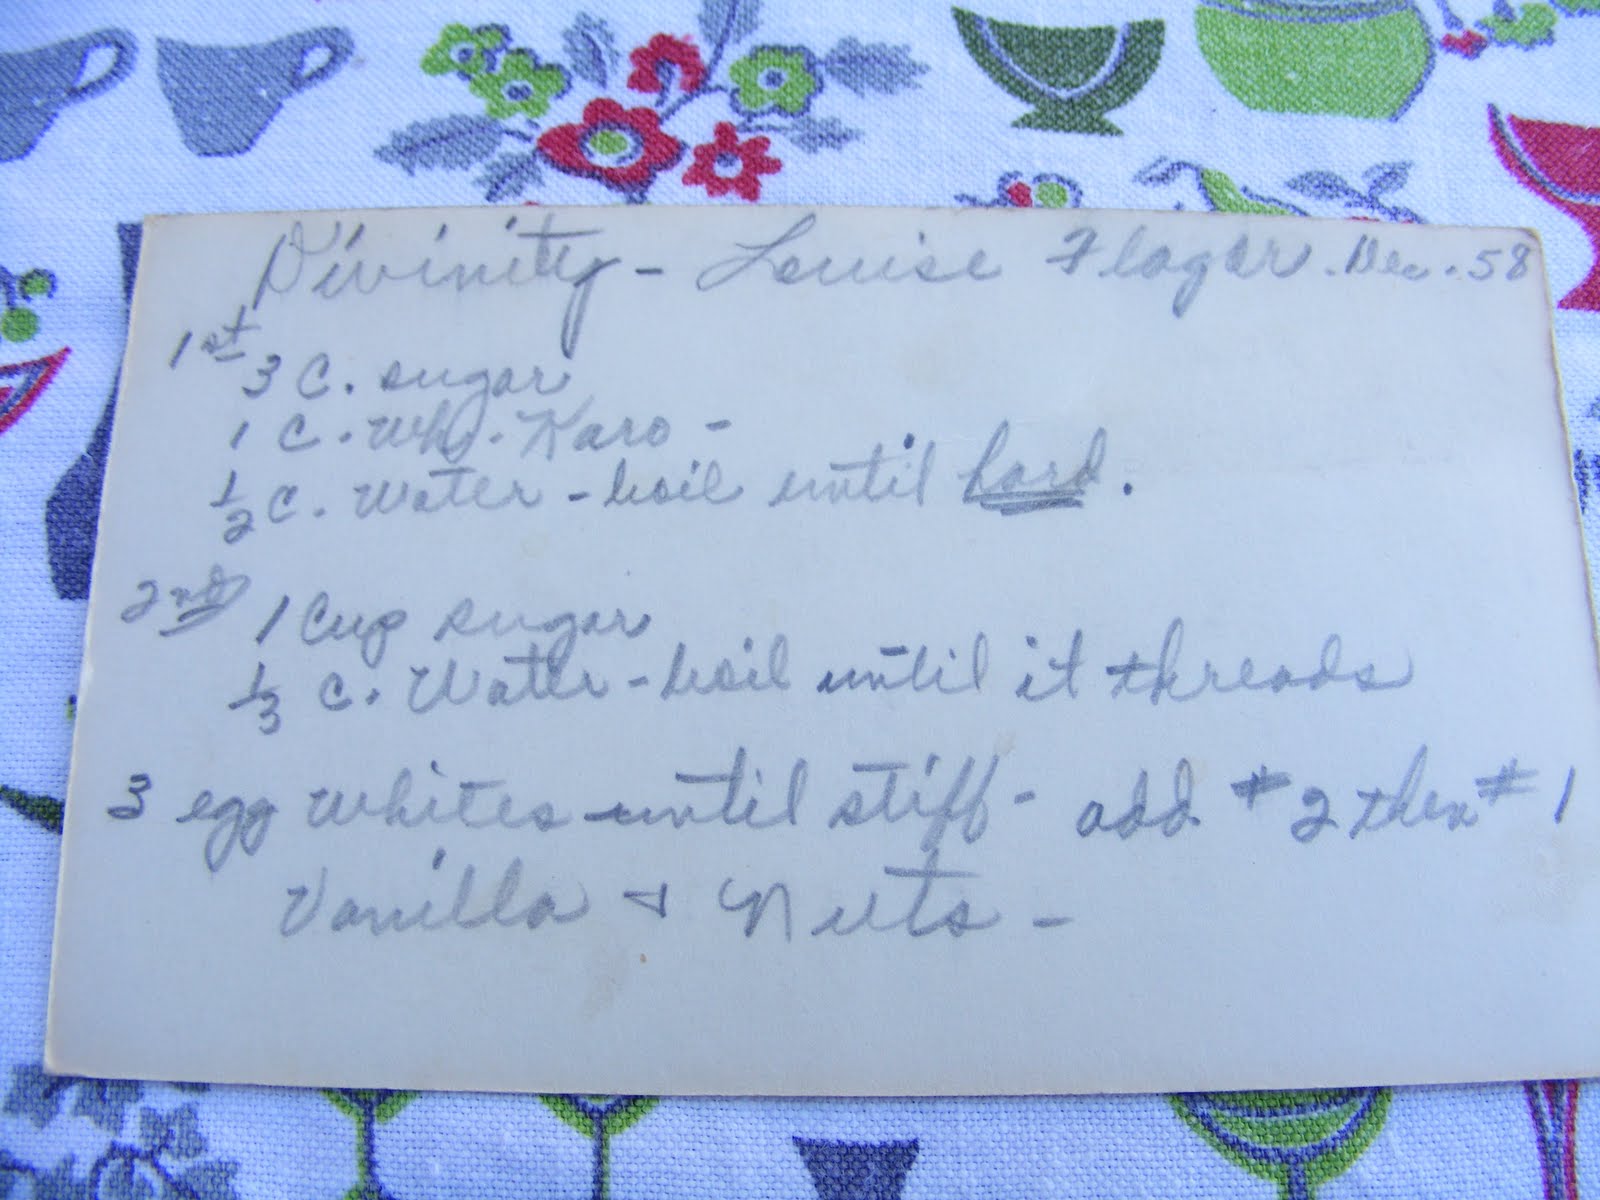 Divinity - Louise Flager. Dec. 58
1st
3 C. sugar
1 C. Wh. Karo -
1/2 C. Water - boil until hard.
2nd 1 Cup sugar
1/3 C. Water - boil until it threads
3 egg whites until stiff - add #2 then #1
Vanilla + Nuts -